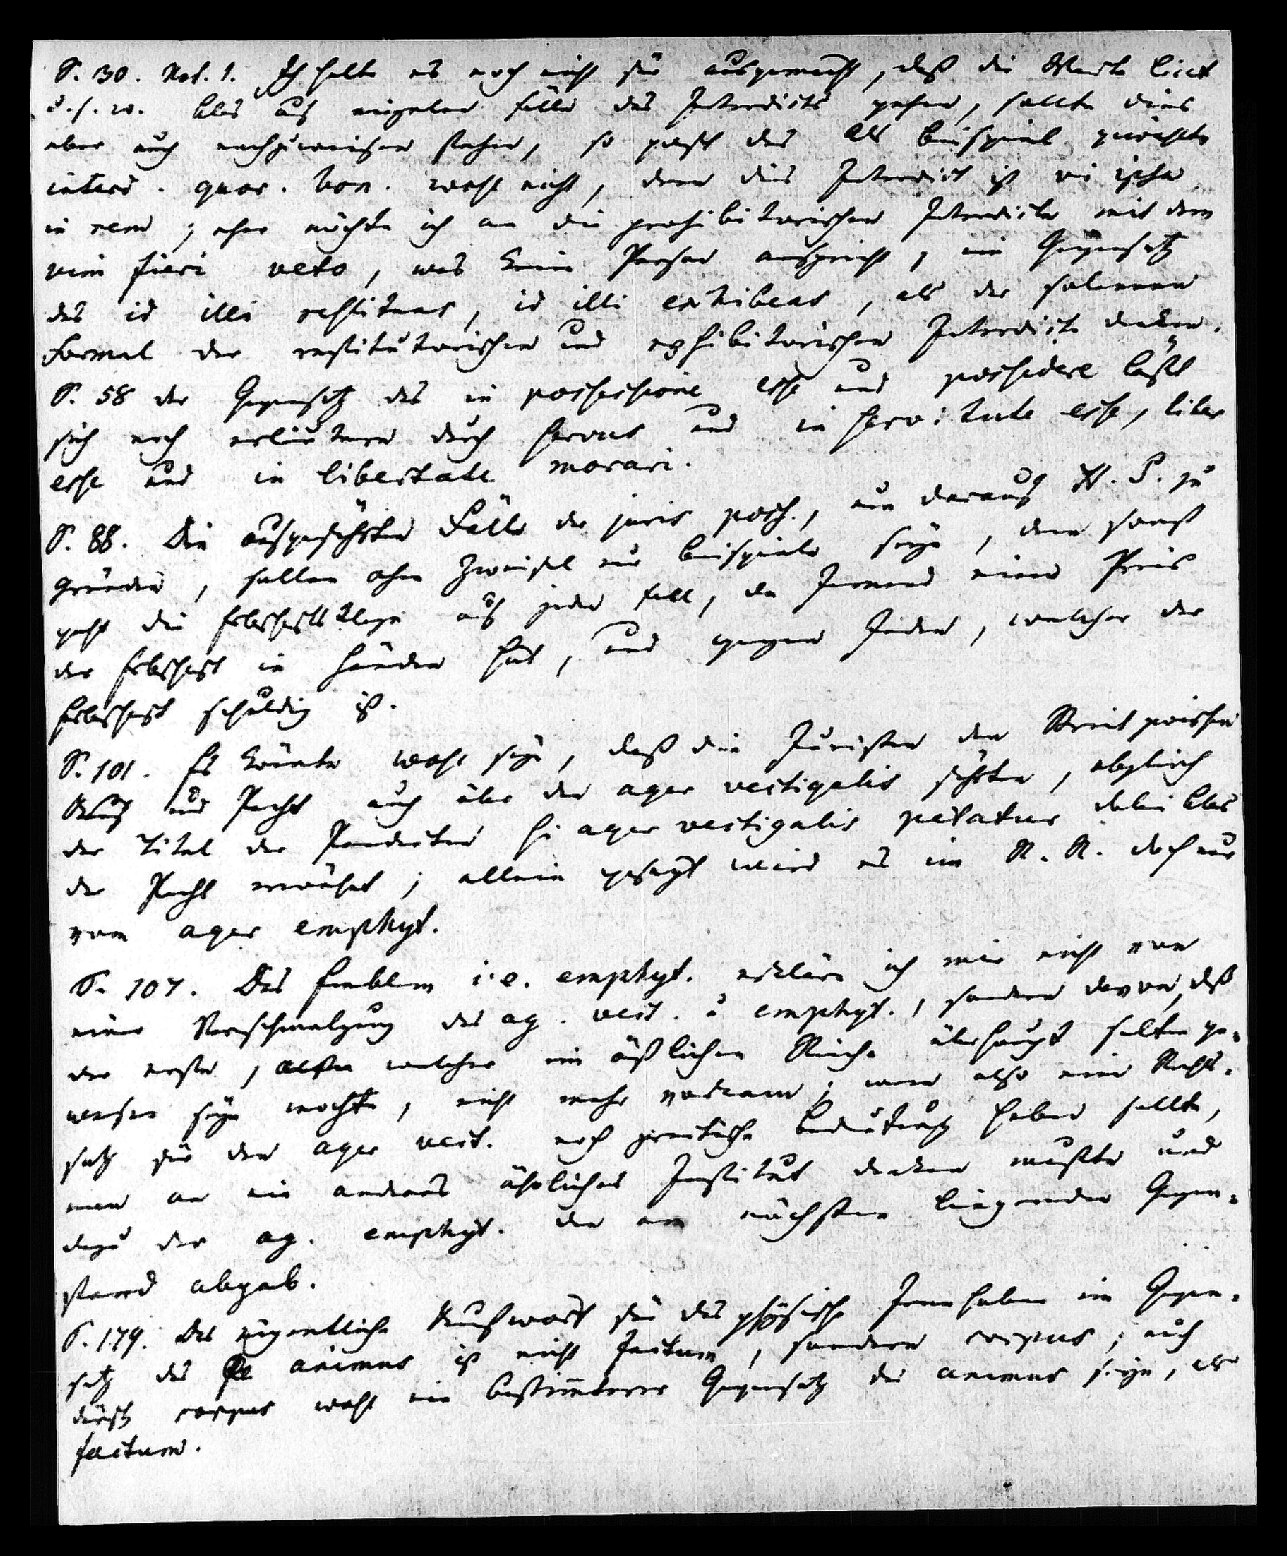 S. 30. Not. 1. Ich halte es noch nicht für ausgemacht, daß die Worte licet
u. s. w. blos auf einzelne Fälle des Interdicts gehen, sollte dies
aber auch nachzuweisen stehen, so paßt das als Beispiel gewählte
interd. quor. bon. wohl nicht, denn dies Interdict ist
in rem; eher möchte ich an die prohibitorischen Interdicte mit dem
vim fieri veto, was keine Person ausspricht, im Gegensatz
des id illi restituas, id illi exhibeas, als der solennen
Formel der restitutorischen und exhibitorischen Interdicte denken.
S. 58 der Gegensatz des in possessione esse und possidere läßt
sich noch erläutern durch servus und in servitute esse, liber
esse und in libertate morari.
S. 88. Die aufgeführten Fälle der juris poss., um daraus H. P. zu
gründen, sollen ohne Zweifel nur Beispiele seyn, denn sonst
geht die Erbschaftsklage auf jeden Fall, da Jemand einen Preis
der Erbschaft in Händen hat, und gegen Jeden, welcher der
Erbschaft schuldig ist.
S. 101. Es könnte wohl seyn, daß die Juristen den Streit zwischen
Kauf und Pacht auch über den ager vectigalis führten, obgleich
der Titel der Pandecten si ager vectigalis petatur dabei blos
der Pacht erwähnt; allein gesagt wird es im R. R. doch nur
vom ager emphyt.
S. 107. Das Emblem i. e. emphyt. erkläre ich mir nicht von
einer Verschmelzung des ag. vect. u emphyt., sondern davon, daß
der erste, welcher im östlichen Reiche überhaupt selten ge-
wesen seyn mochte, nicht mehr vorkam; wenn also eine Rechts-
satz für den ager vect. noch practische Bedeutung haben sollte,
man an ein anderes ähnliches Institut denken mußte und
dazu der ag. emphyt. den am nächsten liegenden Gegen-
stand abgab.
S. 179. Das eigentliche Kunstwort für das physische Innehaben im Gegen-
satz des animus ist nicht factum, sondern corpus; auch
dürfte corpus wohl ein bestimmterer Gegensatz des animus seyn, als
factum.